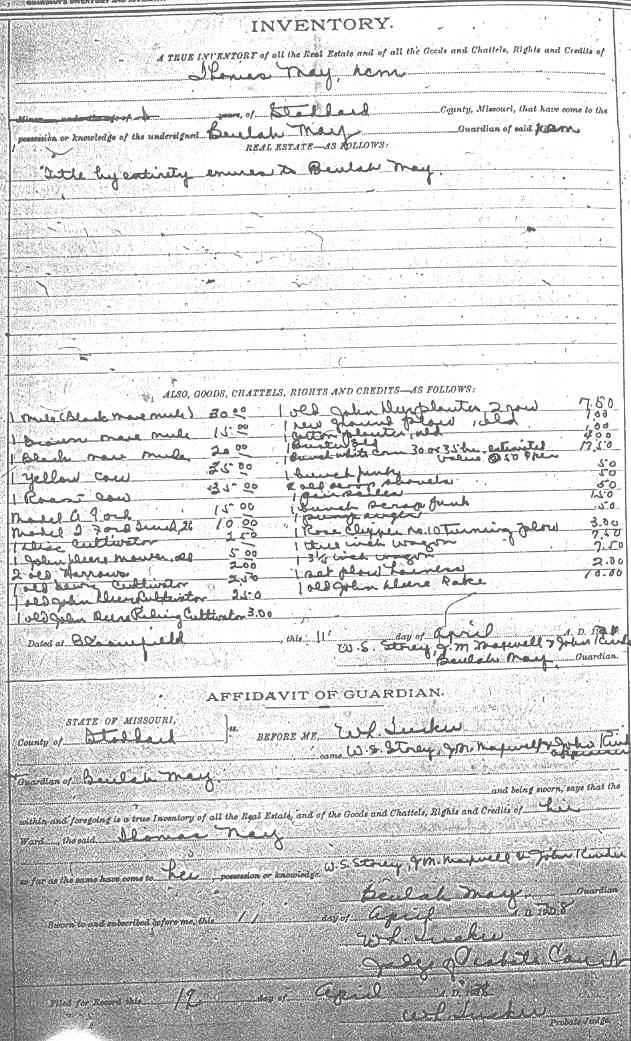 INVENTORY.
A TRUE INVENTORY of all the Real Estate and of all the Goods and Chattels, Rights and Credits of
Thomas May, ncm
years, of Stoddard County, Missouri, that have come to the
possession or knowledge of the undersigned Beulah May Guardian of said ncm
REAL ESTATE—AS FOLLOWS:
Title by entirety enures to Beulah May.
ALSO, GOODS, CHATTELS, RIGHTS AND CREDITS—AS FOLLOWS:
1 Mule (Black mare mule) 30 00 1 old John Deere planter 2 row 7.50
1 Brown mare mule 15 00 1 new ground plow, old 1.00
1 Black mare mule 20 00 1 cotton planter, old 1.00
1 Yellow cow 25 00
1 Roan cow 25 00
Model A Ford 15 00 1 bunch scrap junk
Model T Ford truck, 26 10 00
1 Disc Cultivator 2 50 1 Rose Clipper No. 10 Turning plow 3.00
1 John Deere mower, old 5 00 1 three inch wagon 7.50
2 old Harrows 2.00 1 3½ inch wagon 7.50
1 old Cultivator 2.50 1 set plow harness 2.00
1 old John Deere Cultivator 2.50 1 old John Deere Rake 10.00
1 old John Deere Riding Cultivator 3.00
Dated at Bloomfield, this 11 day of April A. D.
W. S. Storey, J. M. Maxwell & John Kinder
Beulah May, Guardian.
AFFIDAVIT OF GUARDIAN.
STATE OF MISSOURI,
County of Stoddard ss. BEFORE ME, W L Tucker
came W. S. Storey, J. M. Maxwell & John Kinder
Guardian of Beulah May.
and being sworn, says that the
within and foregoing is a true Inventory of all the Real Estate, and of the Goods and Chattels, Rights and Credits of her
Ward, the said Thomas May
so far as the same have come to her possession or knowledge. W. S. Storey, J. M. Maxwell & John Kinder
Beulah May Guardian
Sworn to and subscribed before me, this 11 day of April A. D.
W L Tucker
Judge of Probate Court
Filed for Record this 12 day of April A. D.
W L Tucker
Probate Judge.